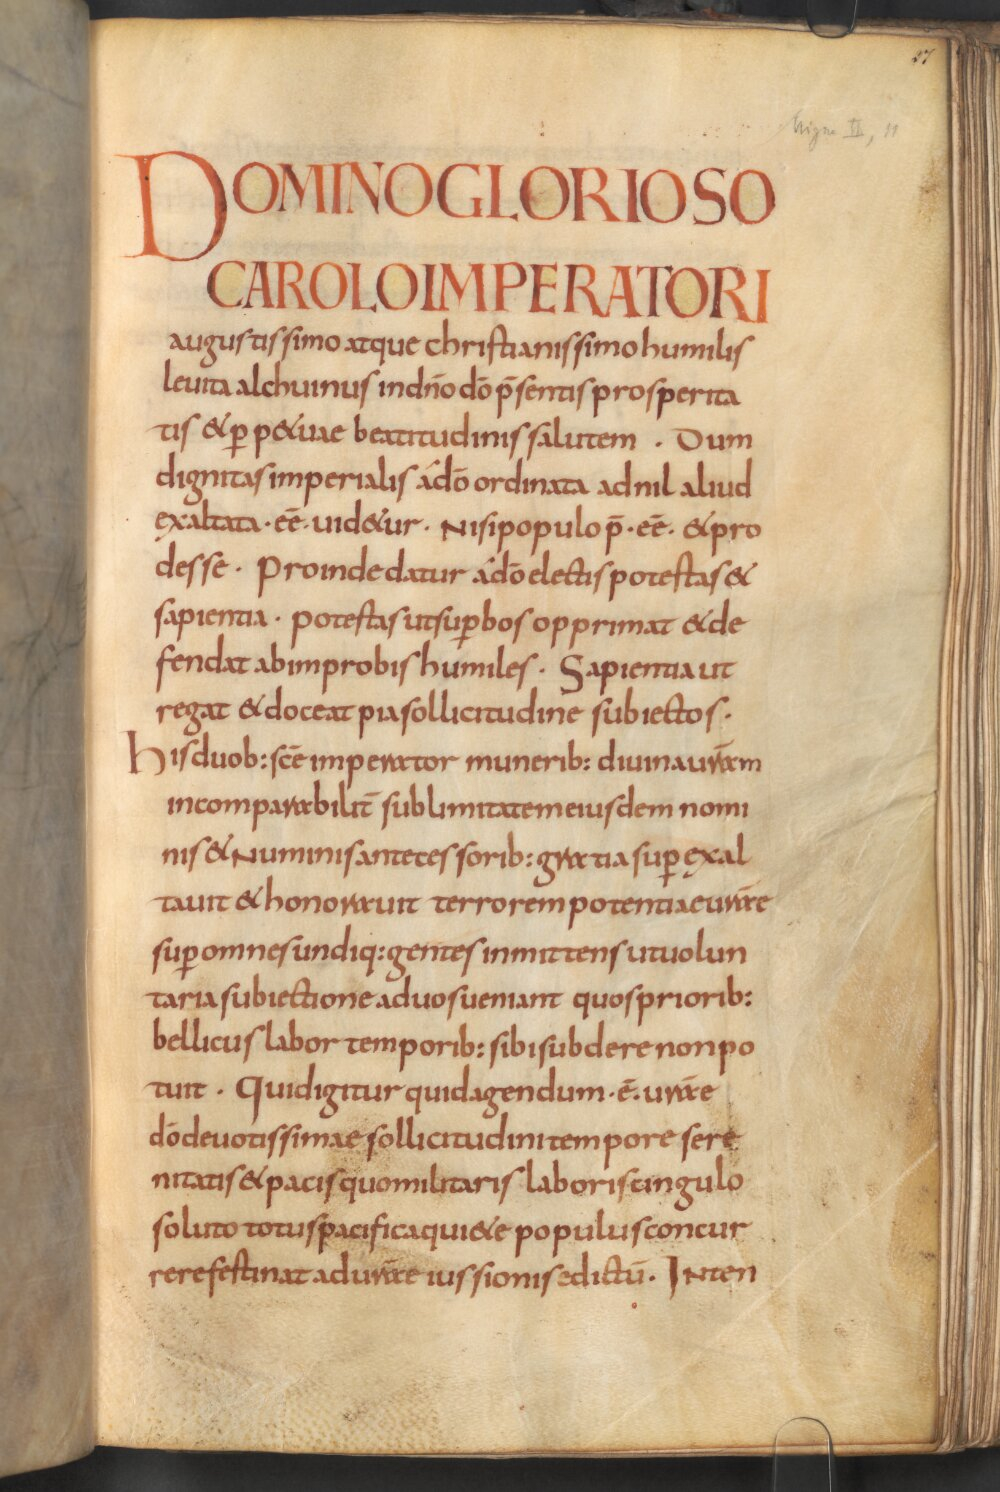 27
Migne II, 11
DOMINO GLORIOSO
CAROLO IMPERATORI
augustissimo atque christianissimo humilis
leuita alchuinus in dño dō p̄sentis prosperita
tis & ꝑp&uae beatitudinis salutem . Dum
dignitas imperialis a dō ordinata ad nil aliud
exaltata · eē · uid&ur · Nisi populo p̄ · eē · & pro
desse · Proinde datur a dō electis potestas &
sapientia · potestas ut suꝑbos opprimat & de
fendat ab improbis humiles · Sapientia ut
regat & doceat pia sollicitudine subiectos ·
his duob: sc̄e imperator munerib: diuina ur̄am
incomparabilit̄ sublimitatem eiusdem nomi
nis & Numinis antecessorib: gratia suꝑexal
tauit & honorauit terrorem potentiae ur̄ae
suꝑ omnes undiq: gentes inmittens ut uolun
taria subiectione ad uos ueniant quos priorib:
bellicus labor temporib: sibi subdere non po
tuit · Quid igitur quid agendum · ē · ur̄ae
dō deuotissimae sollicitudini tempore sere
nitatis & pacis quo militaris laboris cingulo
soluto totus pacifica qui&e populus concur
rere festinat ad ur̄ae iussionis edictū · Inten